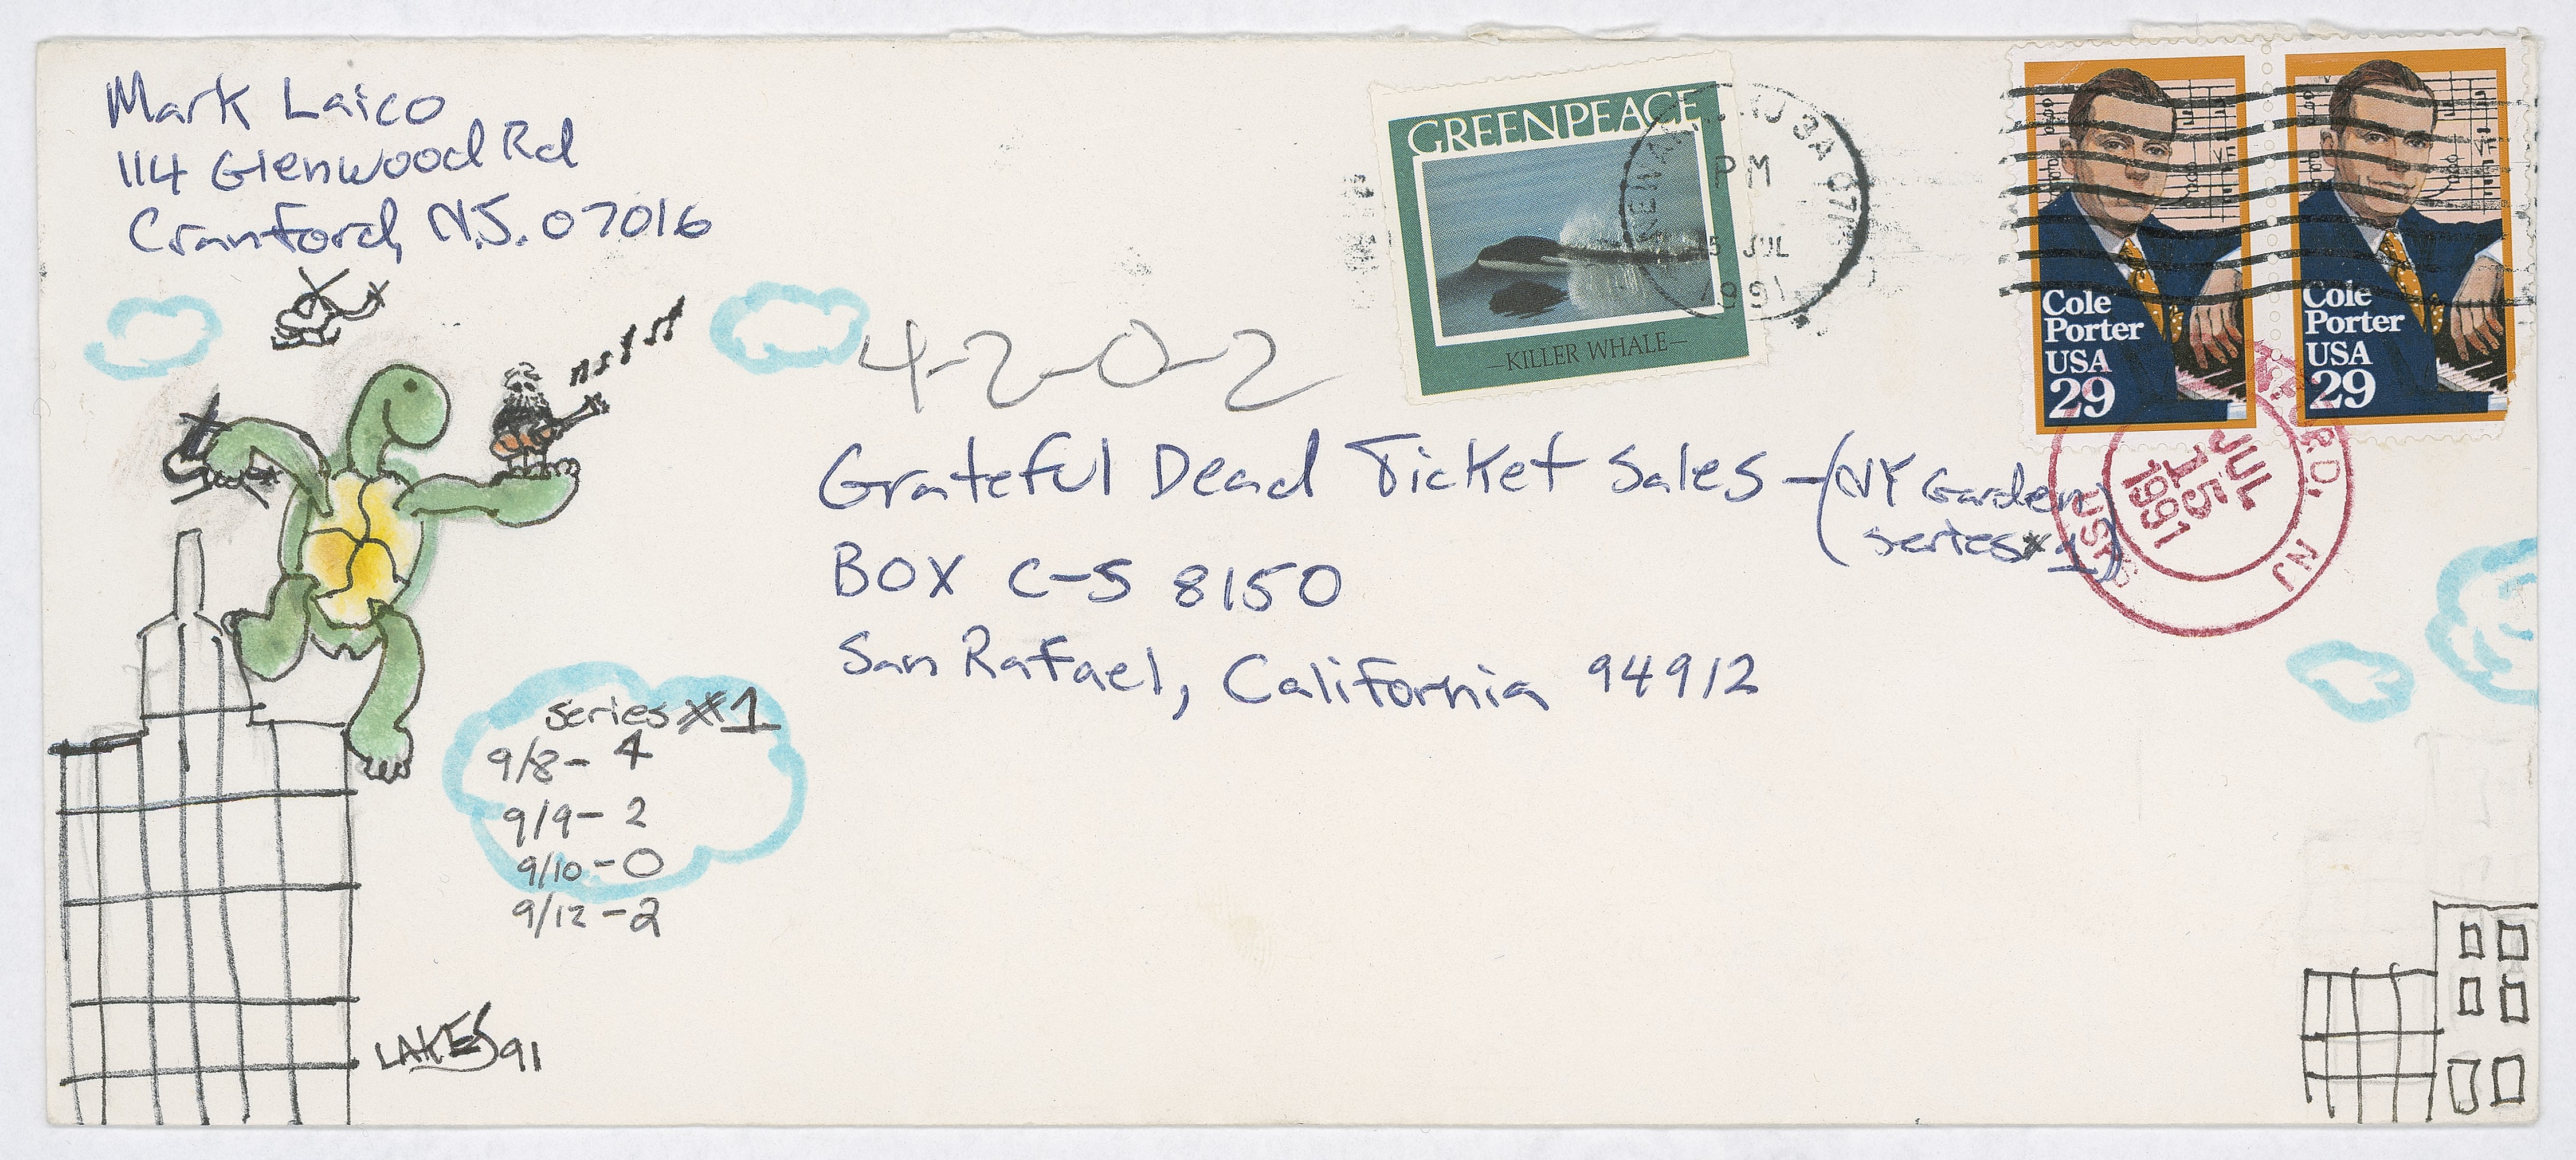 Mark Laico
114 Glenwood Rd
Cranford, N.J. 07016
GREENPEACE
—KILLER WHALE—
NJ
PM
15 JUL
1991
Cole
Porter
USA
29
Cole
Porter
USA
29
4-2-0-2
Grateful Dead Ticket Sales - (NY Garden
series #1)
BOX C-S 8150
San Rafael, California 94912
JUL
15
1991
NJ
USPO
series #1
9/8- 4
9/9- 2
9/10-0
9/12-2
LAKES 91